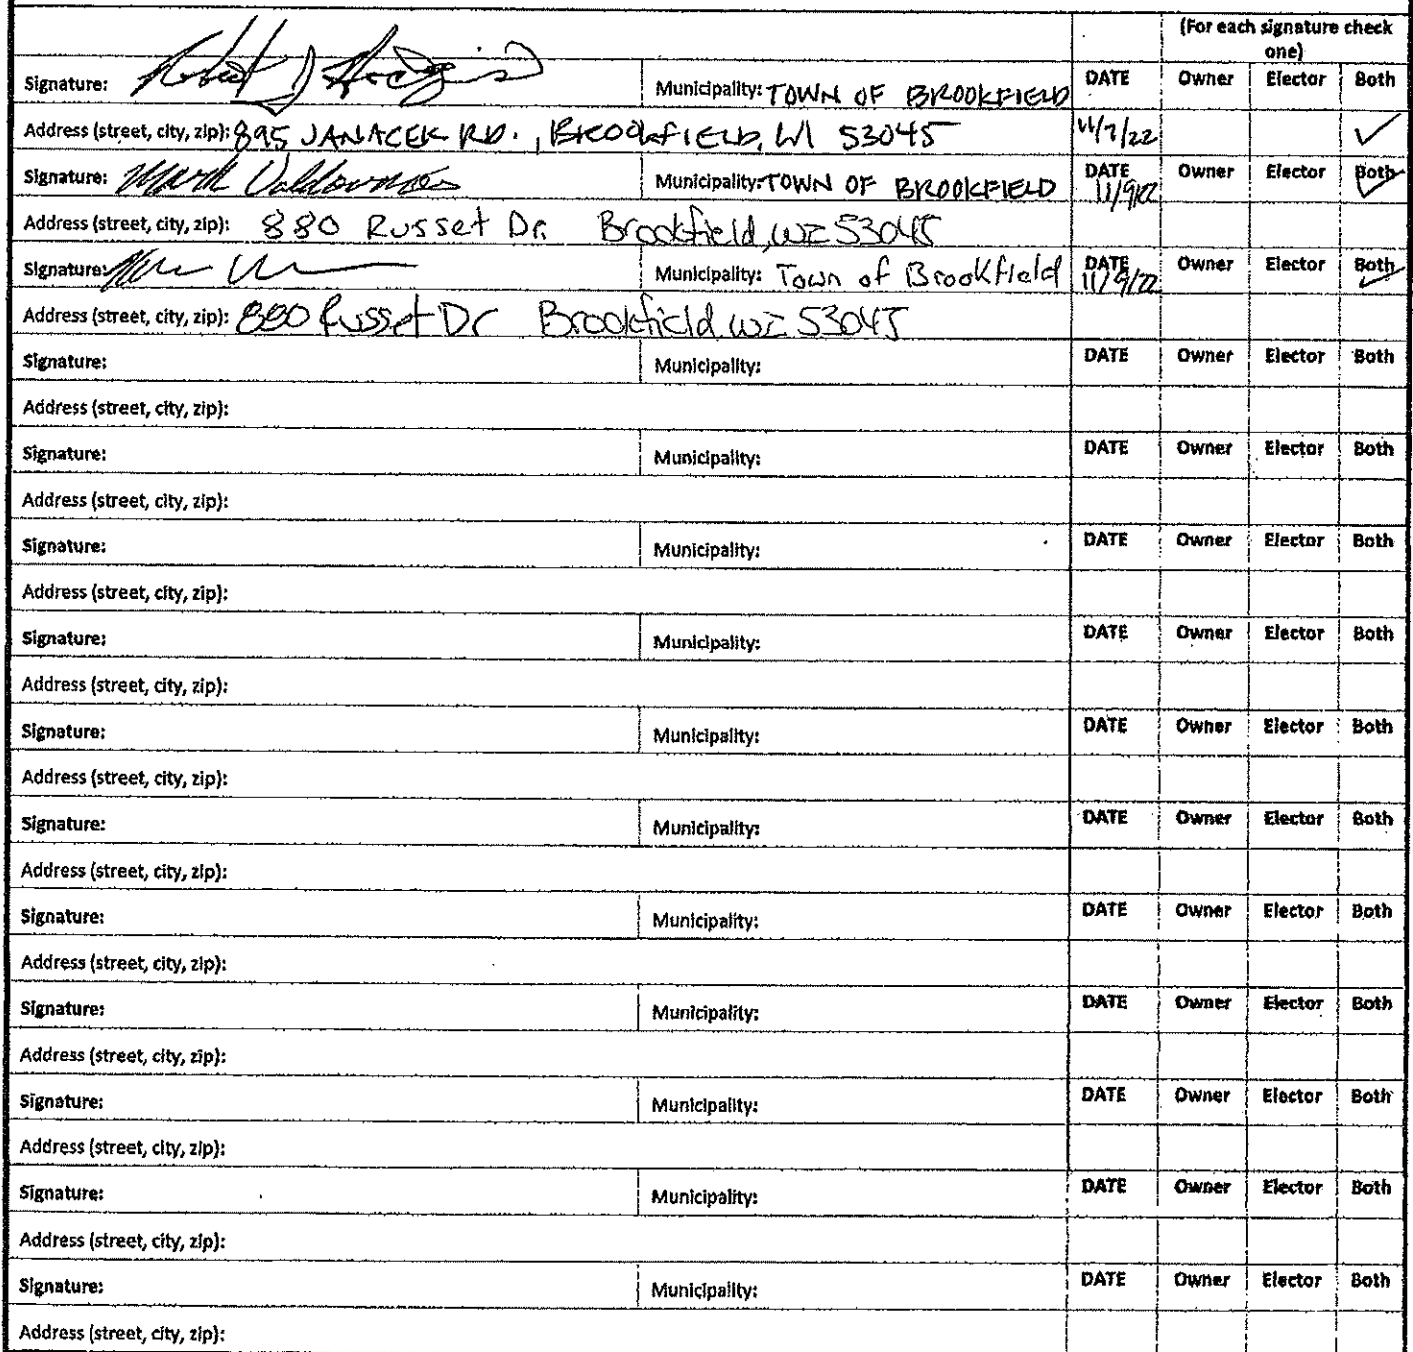 (For each signature check
one)
Signature: Robert J Municipality: TOWN OF BROOKFIELD DATE Owner Elector Both
Address (street, city, zip): 895 JANACEK RD., BROOKFIELD, WI 53045 11/7/22 ✓
Signature: Mark Municipality: TOWN OF BROOKFIELD DATE 11/9/22 Owner Elector Both ✓
Address (street, city, zip): 880 Russet Dr. Brookfield, WI 53045
Signature: Municipality: Town of Brookfield DATE 11/9/22 Owner Elector Both ✓
Address (street, city, zip): 880 Russet Dr Brookfield, WI 53045
Signature: Municipality: DATE Owner Elector Both
Address (street, city, zip):
Signature: Municipality: DATE Owner Elector Both
Address (street, city, zip):
Signature: Municipality: DATE Owner Elector Both
Address (street, city, zip):
Signature: Municipality: DATE Owner Elector Both
Address (street, city, zip):
Signature: Municipality: DATE Owner Elector Both
Address (street, city, zip):
Signature: Municipality: DATE Owner Elector Both
Address (street, city, zip):
Signature: Municipality: DATE Owner Elector Both
Address (street, city, zip):
Signature: Municipality: DATE Owner Elector Both
Address (street, city, zip):
Signature: Municipality: DATE Owner Elector Both
Address (street, city, zip):
Signature: Municipality: DATE Owner Elector Both
Address (street, city, zip):
Signature: Municipality: DATE Owner Elector Both
Address (street, city, zip):